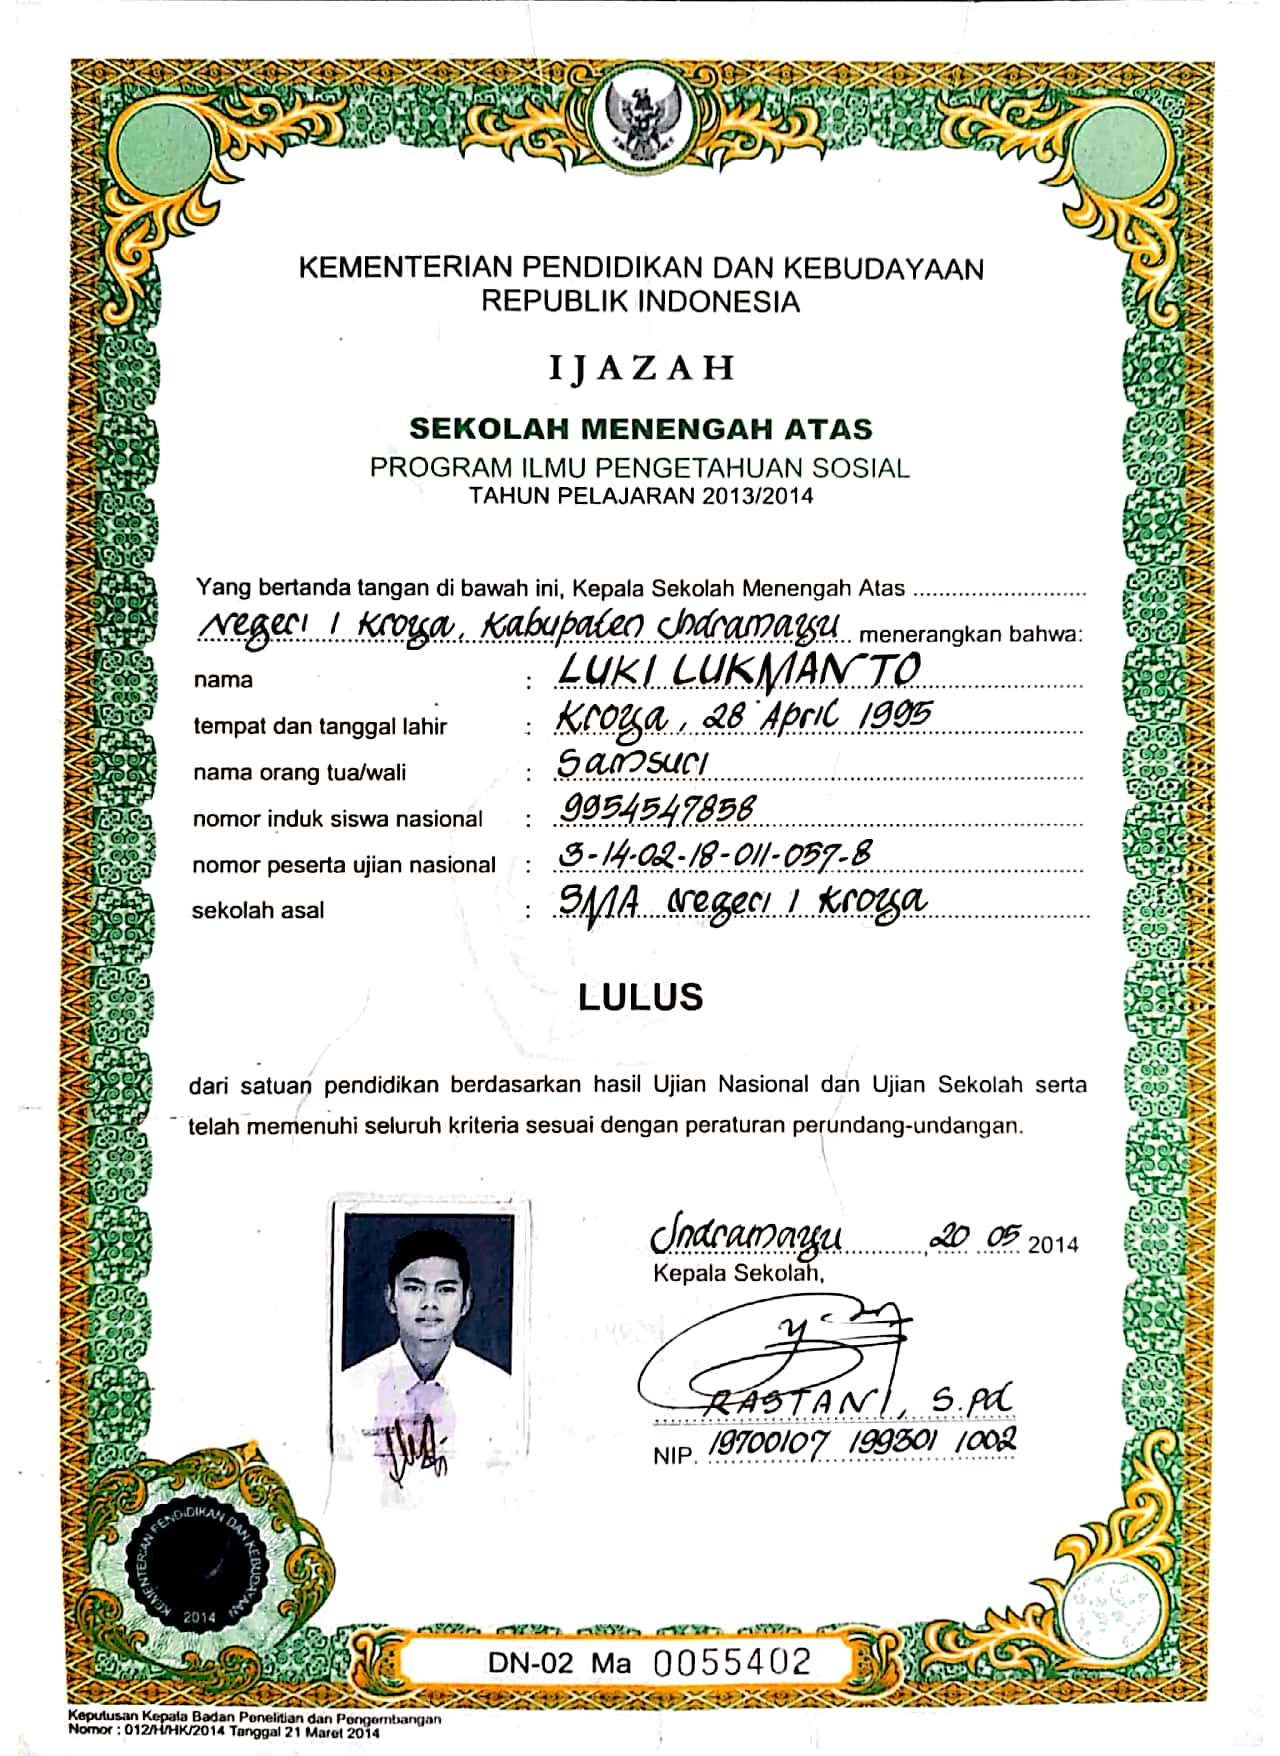 KEMENTERIAN PENDIDIKAN DAN KEBUDAYAAN
REPUBLIK INDONESIA
IJAZAH
SEKOLAH MENENGAH ATAS
PROGRAM ILMU PENGETAHUAN SOSIAL
TAHUN PELAJARAN 2013/2014
Yang bertanda tangan di bawah ini, Kepala Sekolah Menengah Atas
Negeri 1 Kroya, Kabupaten Indramayu menerangkan bahwa:
nama : LUKI LUKMANTO
tempat dan tanggal lahir : Kroya, 28 April 1995
nama orang tua/wali : Samsuri
nomor induk siswa nasional : 9954547858
nomor peserta ujian nasional : 3-14-02-18-011-057-8
sekolah asal : SMA Negeri 1 Kroya
LULUS
dari satuan pendidikan berdasarkan hasil Ujian Nasional dan Ujian Sekolah serta
telah memenuhi seluruh kriteria sesuai dengan peraturan perundang-undangan.
Indramayu, 20 05 2014
Kepala Sekolah,
RASTANI, S.Pd
NIP. 19700107 199301 1002
KEMENTERIAN PENDIDIKAN DAN KEBUDAYAAN
2014
DN-02 Ma 0055402
Keputusan Kepala Badan Penelitian dan Pengembangan
Nomor : 012/H/HK/2014 Tanggal 21 Maret 2014